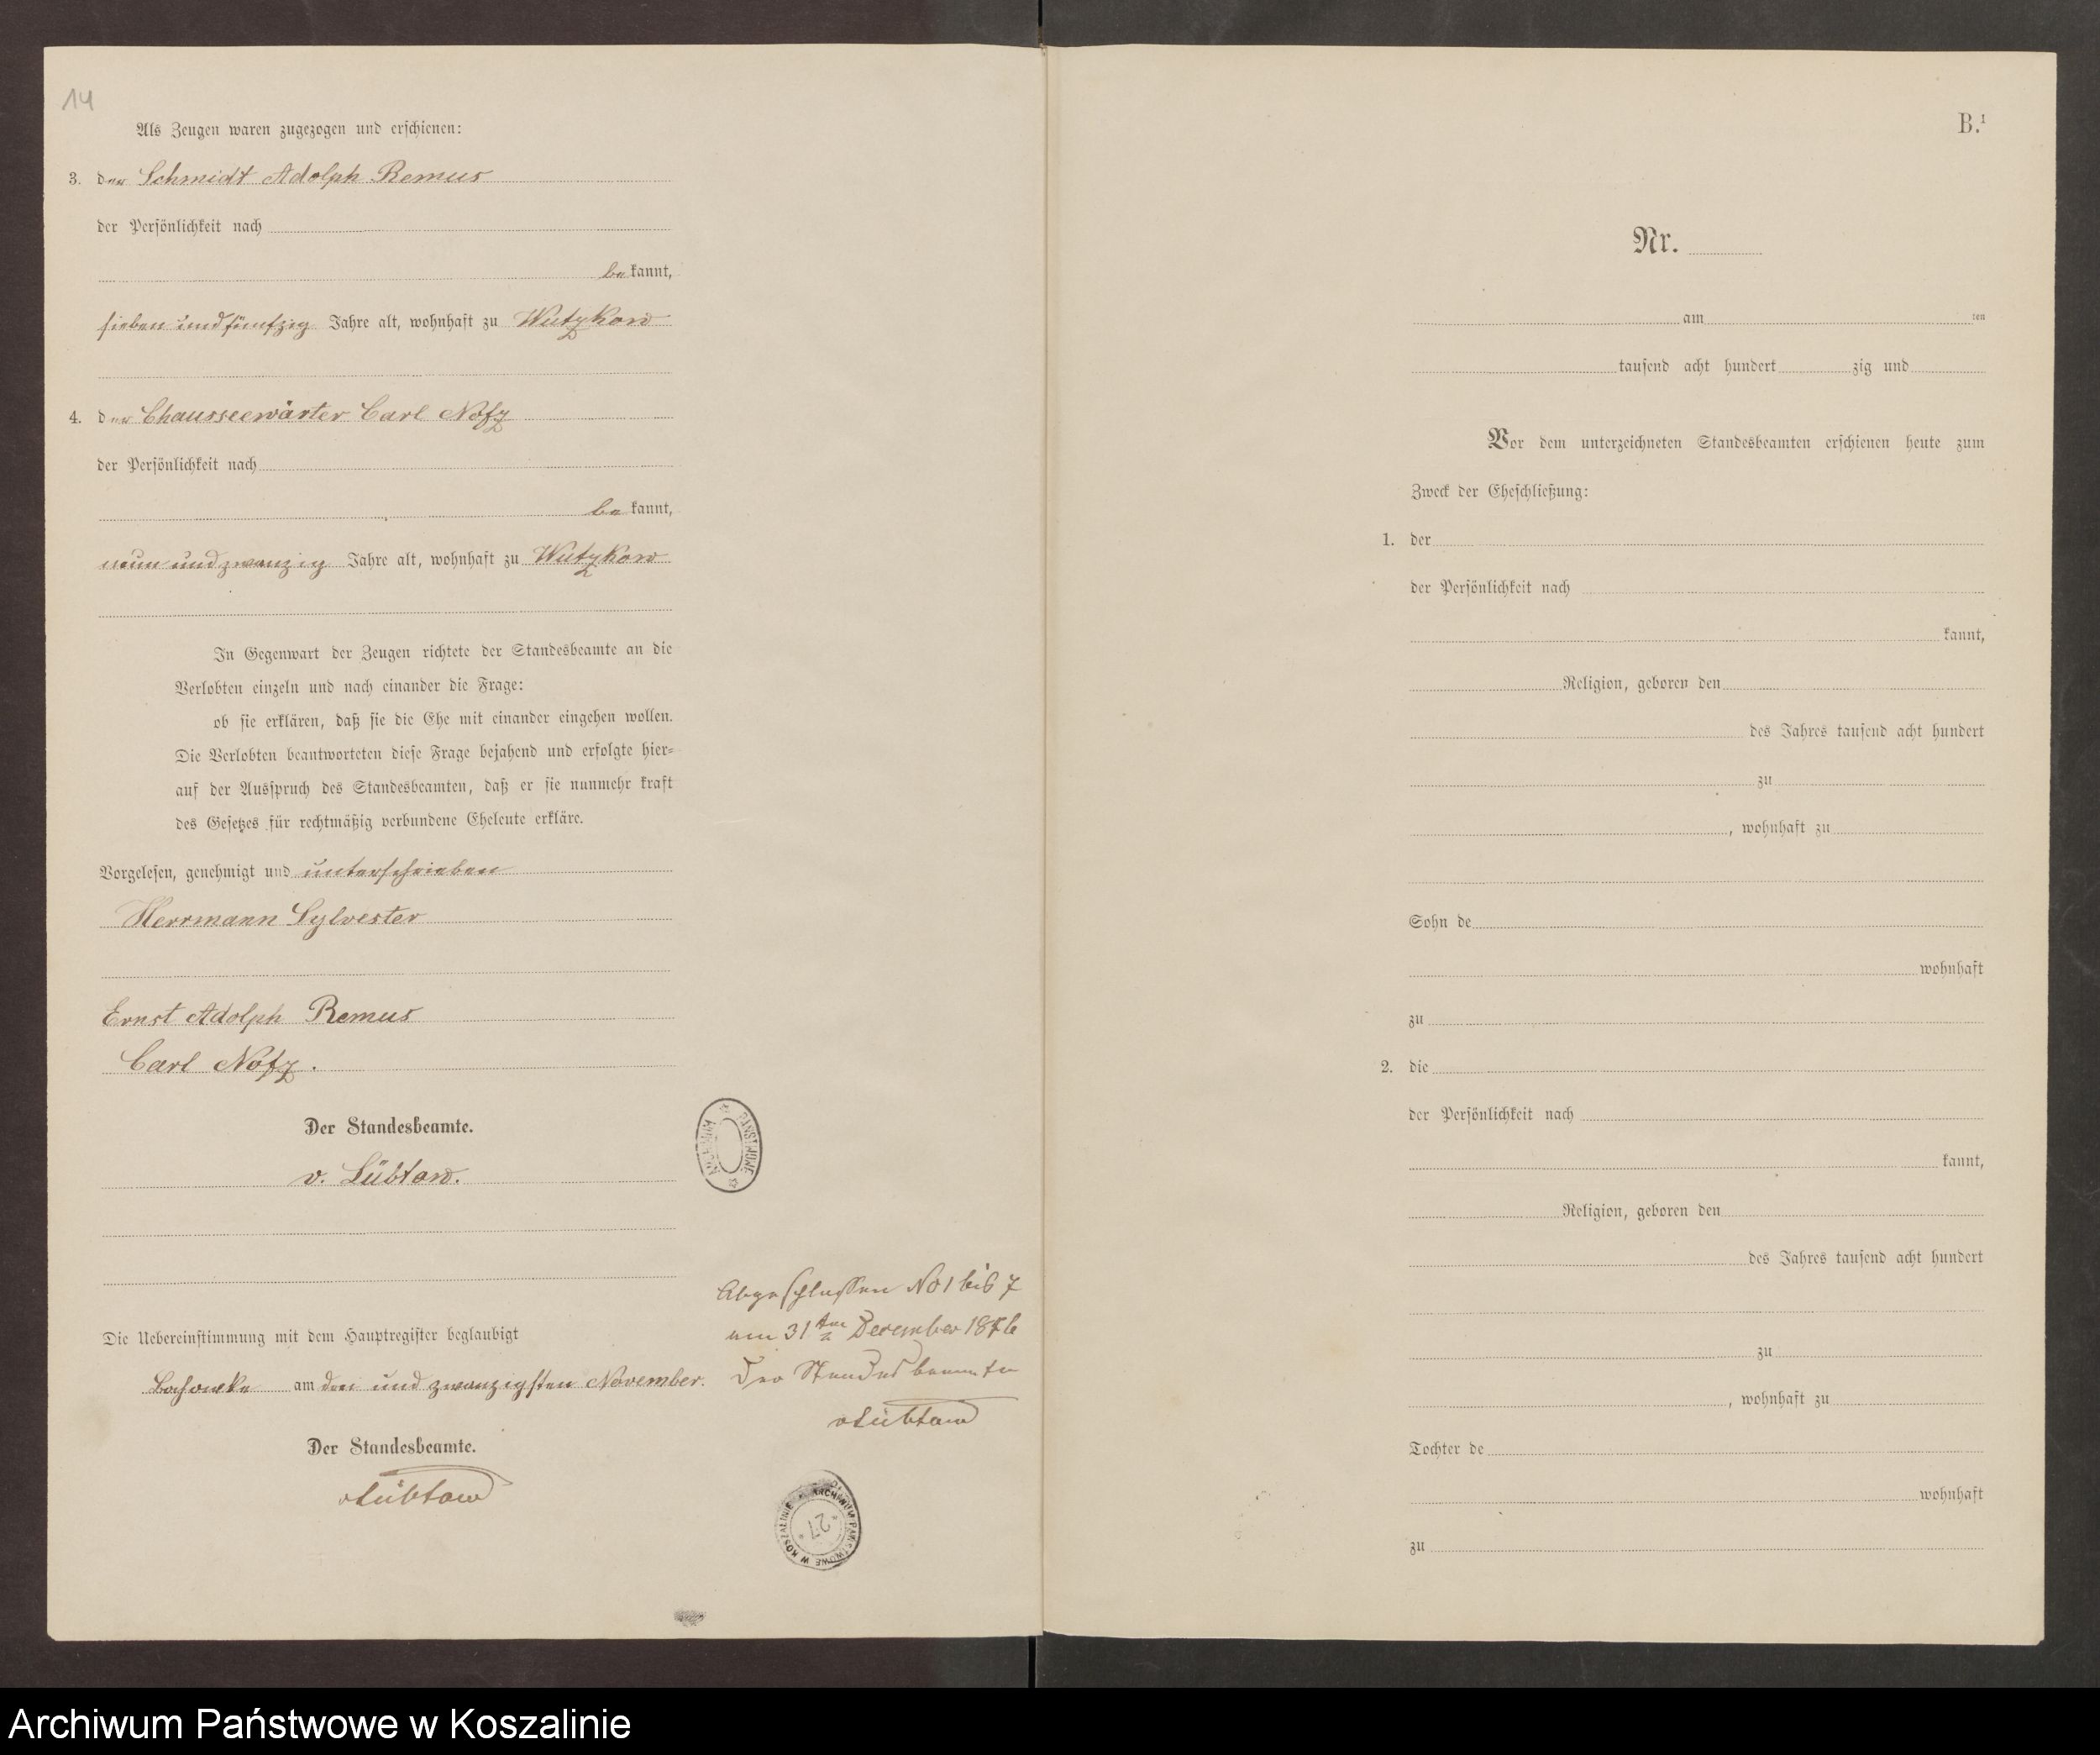 14
Als Zeugen waren zugezogen und erschienen:
3. der Schmidt Adolph Remus
der Persönlichkeit nach
bekannt,
sieben und fünfzig Jahre alt, wohnhaft zu Wutzkow
4. der Chausseewärter Carl Notz
der Persönlichkeit nach
bekannt,
neun und zwanzig Jahre alt, wohnhaft zu Wutzkow
In Gegenwart der Zeugen richtete der Standesbeamte an die
Verlobten einzeln und nach einander die Frage:
ob sie erklären, daß sie die Ehe mit einander eingehen wollen.
Die Verlobten beantworteten diese Frage bejahend und erfolgte hier-
auf der Ausspruch des Standesbeamten, daß er sie nunmehr kraft
des Gesetzes für rechtmäßig verbundene Eheleute erkläre.
Vorgelesen, genehmigt und unterschrieben
Herrmann Sylvester
Ernst Adolph Remus
Carl Notz.
Der Standesbeamte.
v. Lübtow.
ARCHIWUM PAŃSTWOWE
Die Uebereinstimmung mit dem Hauptregister beglaubigt
am drei und zwanzigsten November.
Der Standesbeamte.
vLübtow
Abgeschlossen No 1 bis 7
am 31ten December 1876
Der Standesbeamte
vLübtow
ARCHIWUM PAŃSTWOWE W KOSZALINIE
* 27 *
B.¹
Nr.
am ten
tausend acht hundert zig und
Vor dem unterzeichneten Standesbeamten erschienen heute zum
Zweck der Eheschließung:
1. der
der Persönlichkeit nach
kannt,
Religion, geboren den
des Jahres tausend acht hundert
zu
, wohnhaft zu
Sohn de
wohnhaft
zu
2. die
der Persönlichkeit nach
kannt,
Religion, geboren den
des Jahres tausend acht hundert
zu
, wohnhaft zu
Tochter de
wohnhaft
zu
Archiwum Państwowe w Koszalinie